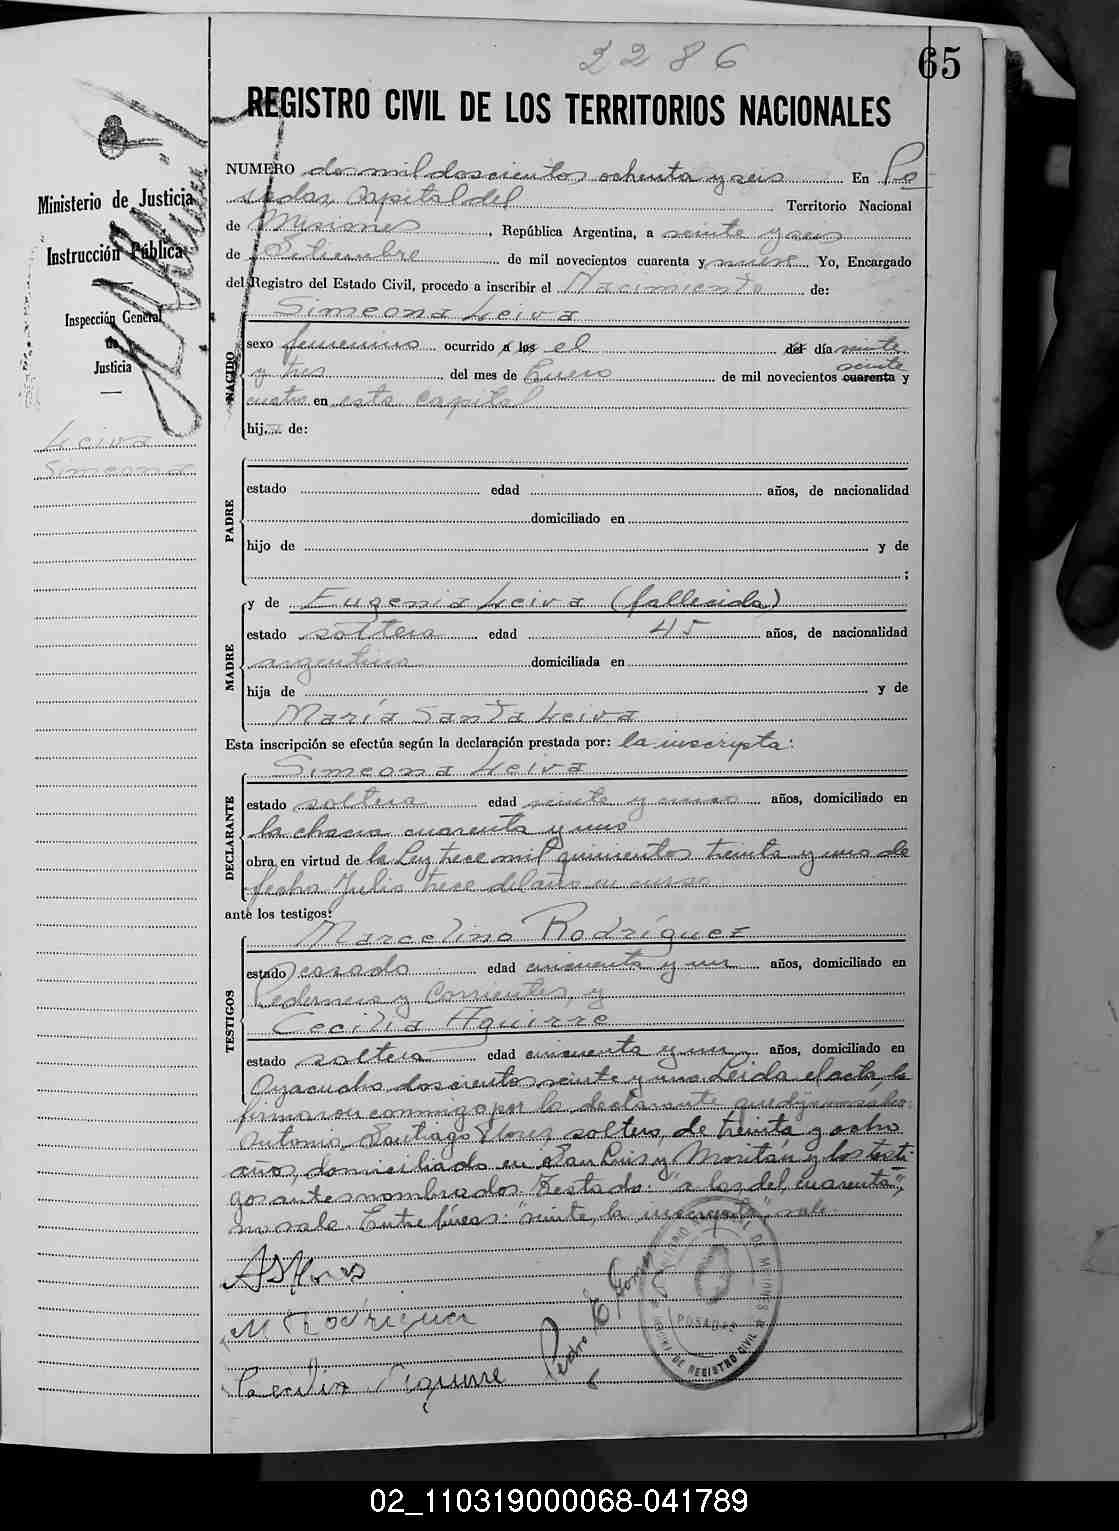 2286
65
REGISTRO CIVIL DE LOS TERRITORIOS NACIONALES
Ministerio de Justicia
Instrucción Pública
Inspección General
de
Justicia
Leiva
Simeona
NUMERO dos mil doscientos ochenta y seis En Po
sadas, capital del Territorio Nacional
de Misiones, República Argentina, a veinte y seis
de Setiembre de mil novecientos cuarenta y nueve Yo, Encargado
del Registro del Estado Civil, procedo a inscribir el Nacimiento de:
Simeona Leiva
NACIDO
sexo femenino ocurrido a las el del día veinte
veinte
y tres del mes de Enero de mil novecientos cuarenta y
cuatro en esta capital
hija de:
PADRE
estado edad años, de nacionalidad
domiciliado en
hijo de y de
;
y de Eugenia Leiva (fallecida)
MADRE
estado soltera edad 45 años, de nacionalidad
argentina domiciliada en
hija de y de
María Santa Leiva
Esta inscripción se efectúa según la declaración prestada por: la inscripta:
Simeona Leiva
DECLARANTE
estado soltera edad veinte y cinco años, domiciliado en
la chacra cuarenta y uno
obra en virtud de la Ley trece mil quinientos treinta y uno de
fecha Julio trece del año en curso
ante los testigos:
Marcelino Rodríguez
TESTIGOS
estado casado edad cincuenta y un años, domiciliado en
Pedernera y Corrientes, y
Cecilia Aguirre
estado soltera edad cincuenta y un años, domiciliado en
Ayacucho doscientos veinte y uno Leida el acta, la
firmaron conmigo por la declarante que dijo no saber
Antonio Santiago Flores, soltero, de treinta y ocho
años, domiciliado en San Luis y Moritán y los testi-
gos antes nombrados. Testado: "a las, del, cuarenta",
no vale. Entre líneas: "veinte, la inscripta", vale.
A S Flores
M Rodriguez
Cecilia Aguirre
Pedro E Gomez
POSADAS
DE REGISTRO CIVIL
02_110319000068-041789